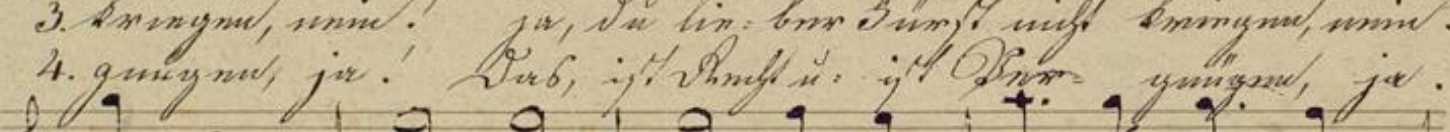 3. kriegen, nein! ja, du lie- ber Fürst nicht kriegen, nein.
4. gnügen, ja! Das, ist Recht u: ist Ver- gnügen, ja.